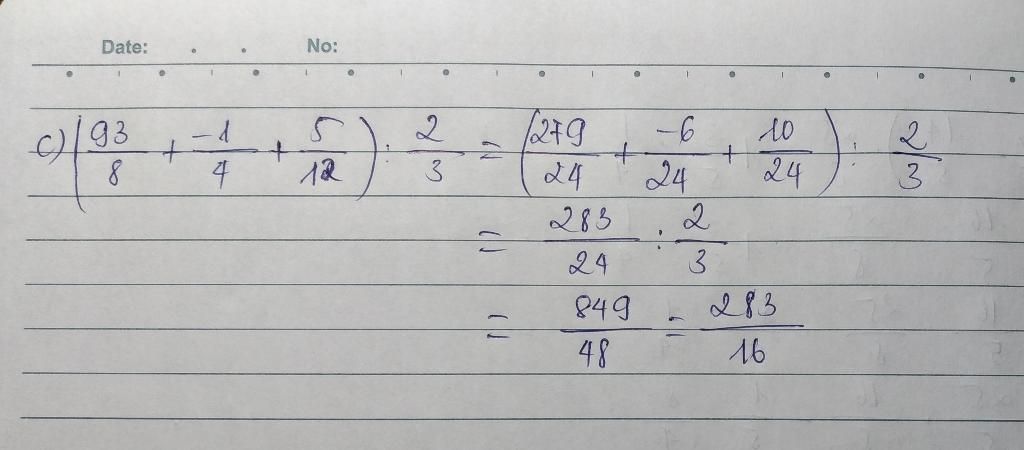 Date: . . No:
c) (93/8 + -1/4 + 5/12) : 2/3 = (279/24 + -6/24 + 10/24) : 2/3
= 283/24 : 2/3
= 849/48 = 283/16